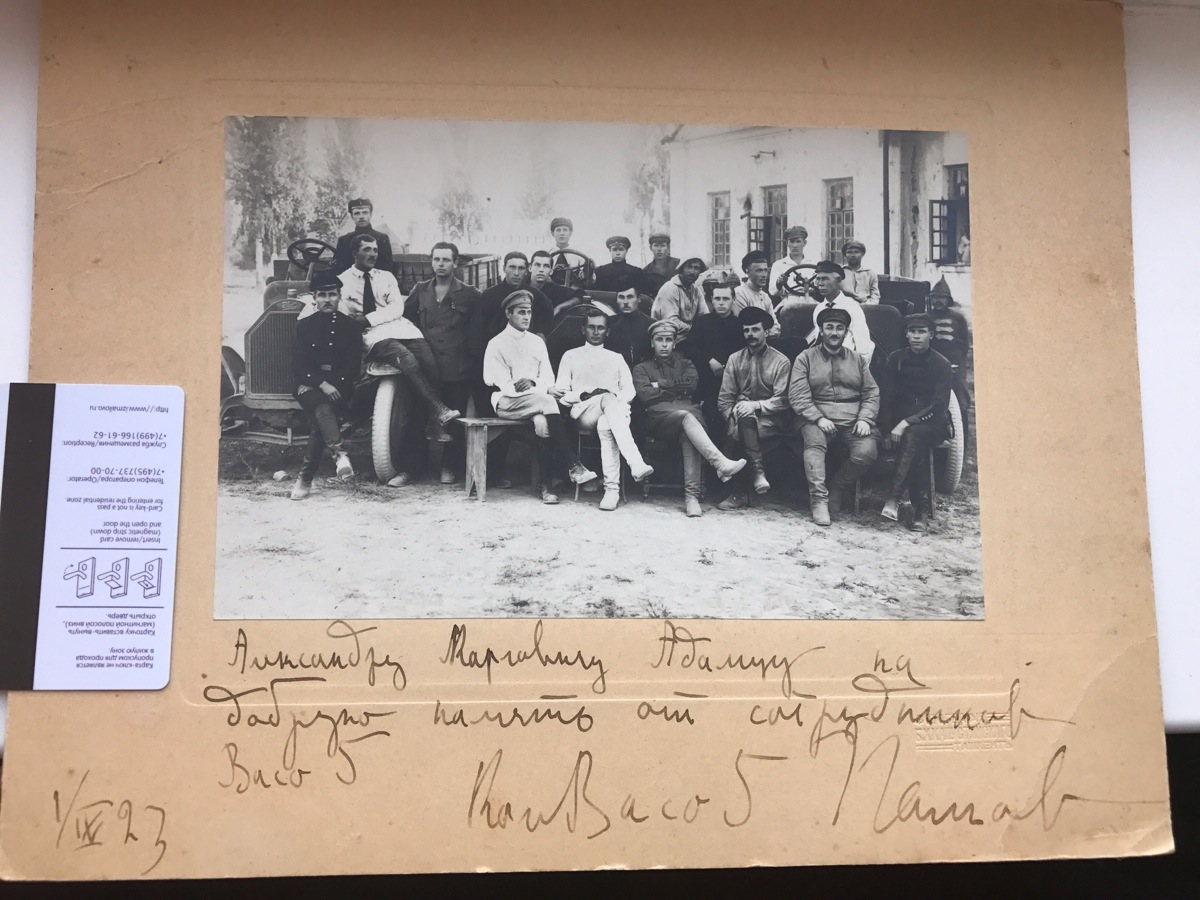 Александру Марговичу Адамцу на
добрую память от сотрудников
Васо 5
КомВасо 5
1/IX 23
http://www.izmailovo.ru
Служба размещения/Reception:
+7(499)166-61-62
Телефон оператора/Operator:
+7(495)737-70-00
Card-key is not a pass
for entering the residential zone.
Insert/remove card
(magnetic strip down)
and open the door.
Карточку вставить-вынуть
(магнитной полосой вниз),
открыть дверь.
Карта-ключ не является
пропуском для прохода
в жилую зону.